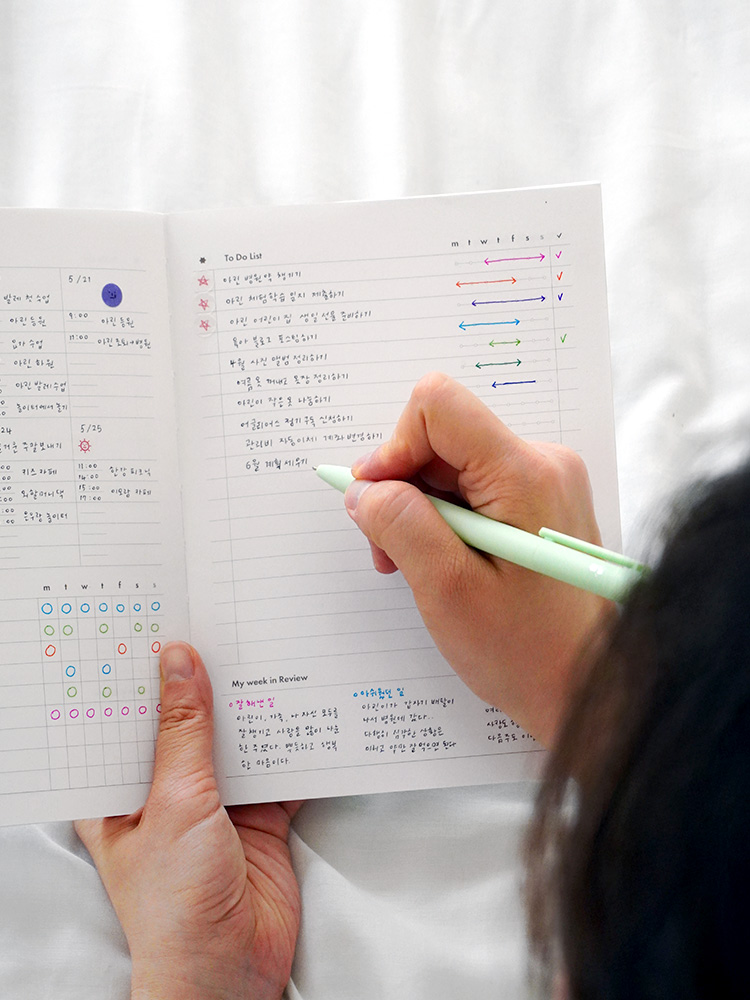 발레 첫 수업
아린 등원
입가 수업
아린 하원
아린 발레 수업
놀이터에서 놀기
24
주말 보내기
키즈 카페
외할머니댁
놀이터
5/21
9:00 아린 등원
17:00 아린 하원→병원
5/25
11:00
14:00 한강 피크닉
15:00
17:00 카페
m t w t f s s
* To Do List m t w t f s s ✓
아린 병원 약 챙기기
아린 체험학습 일지 제출하기
아린 어린이집 생일선물 준비하기
육아 블로그 포스팅하기
4월 사진 앨범 정리하기
여름 옷 꺼내고 옷장 정리하기
아린이 작은 옷 나눔하기
어글리어스 정기구독 신청하기
관리비 자동이체 계좌 변경하기
6월 계획 세우기
My week in Review
잘해낸 일
아린이, 가족, 나 자신 모두를
잘 챙기고 사랑을 많이 나눈
한 주였다. 뿌듯하고 행복
한 마음이다.
아쉬웠던 일
아린이가 갑자기 배탈이
나서 병원에 갔다..
다행히 심각한 상황은
아니고 약만 잘 먹으면 된다
다음주도